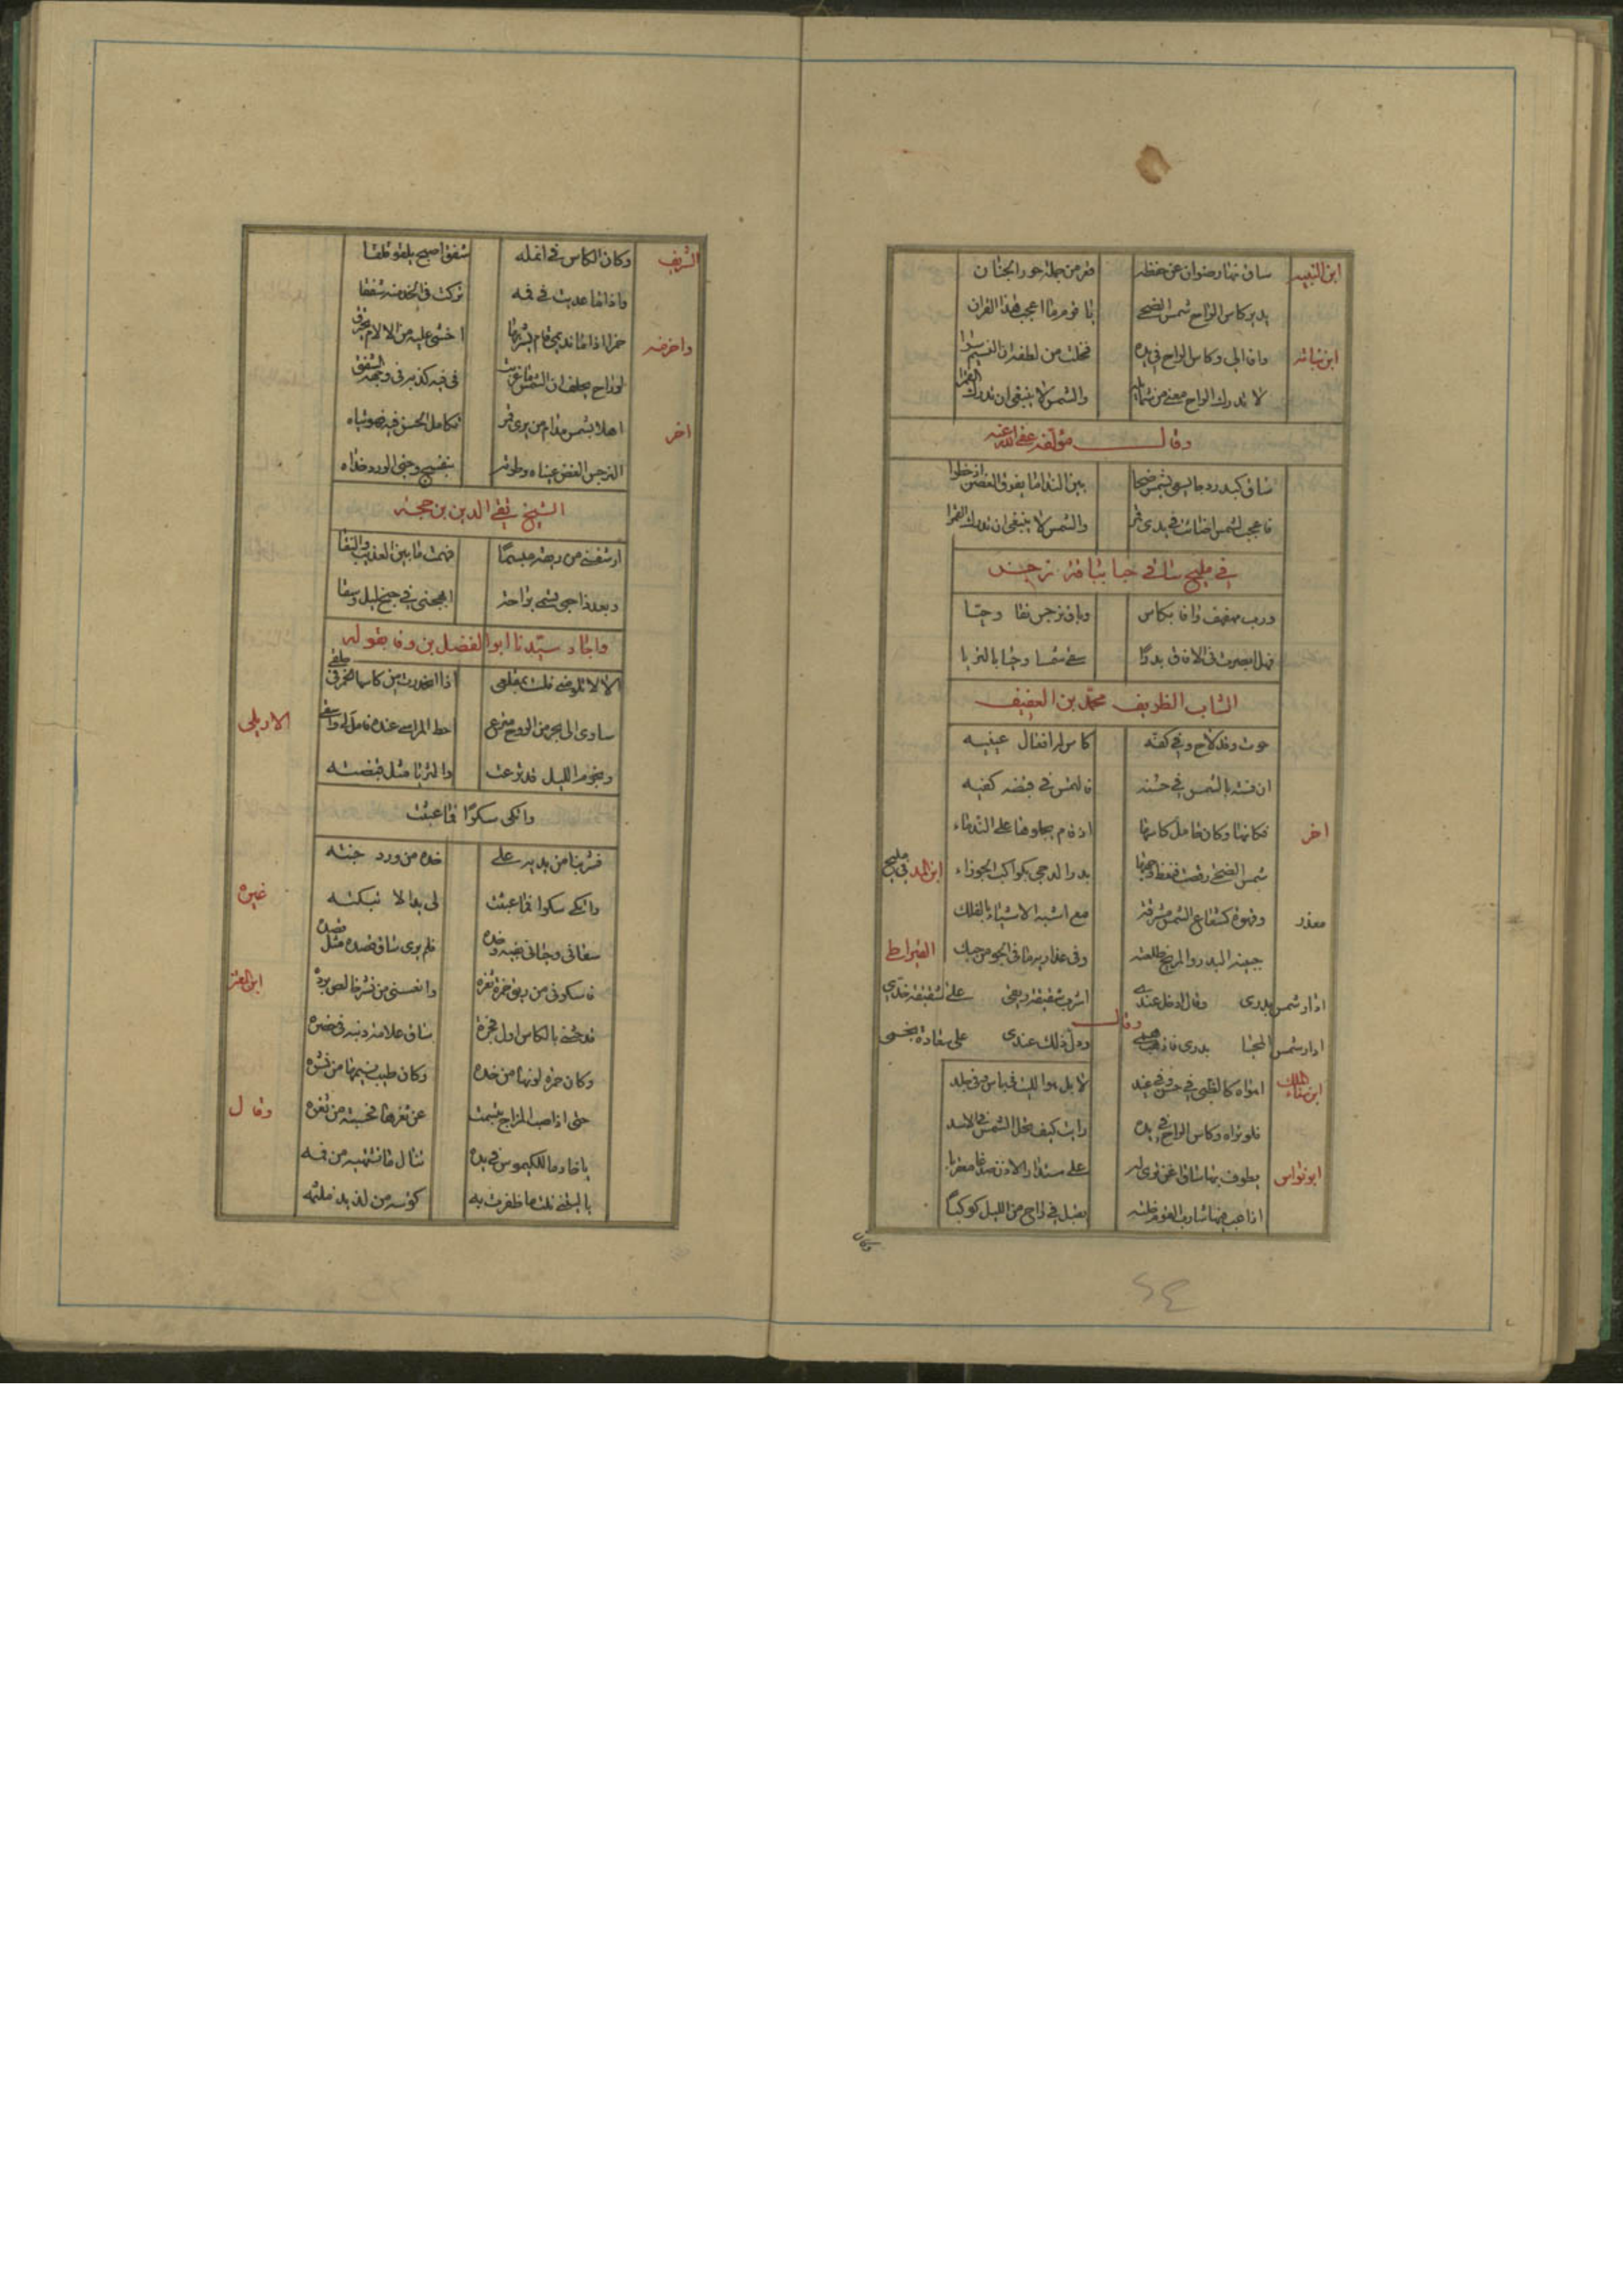 ابن النبيه ساق نهار رضوان عن حفظه فر من جملة حور الجنان
يدير كاس الراح شمس الضحى يا قوم ما اعجب هذا القران
ابن نباته وافا الي وكاس الراح في يده فخلت من لطفه ان النسيم سرا
لا تدرك الراح معنى من شمايله والشمس لا ينبغي ان تدرك القمرا
وقال مؤلفه عفى الله عنه
ساق كبدر دجا يسعى بشمس ضحا بين النداما يفوق الغصن ان خطرا
فاعجب لشمس اضائت في يدي قمر والشمس لا ينبغي ان تدرك القمرا
في مليح ساق حيا بباقة نرجس
ورب مهفهف وافا بكاس وباقة نرجس نقا وحيا
فهل ابصرت في الافاق بدرا سقى شمسا وحيا بالثريا
الشاب الظريف محمد بن العفيف
وقد لاح وفي كفه كاس له افعال عينيه
ان قسته بالشمس في حسنه فالشمس في قبضه كفيه
اخر فكانها وكان حامل كاسها اذ قام يجلوها على الندماء
شمس الضحى رقصت فنقط وجهها بدر الدجى بكواكب الجوزاء
ابن في مليح
معذر وقهوة كشعاع الشمس مشرقة مع اشبه الاشياء بالفلك
جبينه البدر والمريخ طلعته وفي عذاريه ما في الجو من حبك
القيراطي
ادار شمس بدري وقال لاقل عندي اشرب شقيقة ريقي على شقيقة خدي
وقال
ادار شمس الحميا بدري ودل ذلك عندي على سعادة نجمي
ابن سناء الملك امواه كالظبي في حسن وفي غيد لا بل هو الليث في باس وفي جلد
فلو تراه وكاس الراح في يده رايت كيف تحل الشمس في الاسد
ابو نواس يطوف بها ساق اغن ترى له على مستدار الاذن صدغا معقربا
اذا عب فيها شارب القوم خلته يقبل في داج من الليل كوكبا
وكان
الشريف وكان الكاس في انمله شفق اصبح يلقو فلقا
واذا ما غربت في فمه تركت في الخد منه شفقا
واخر منه حمرا اذا ما نديمي قام يشربها اخشى عليه من الالام يحترق
لو راح يحلف ان الشمس ما غربت في فيه كذبه في وجهه الشفق
اخر اهلا بشمس مدام من يدي قمر تكامل الحسن فيه فهو تياه
النرجس الغض عيناه وطرته بنفسج وجني الورد خداه
الشيخ تقي الدين بن حجة
ارشفني من ريقه مبسما فهمت ما بين العذيب والنقا
وبعد ذا حيى بشمس راحة اعجبني في جنح ليل وسقا
واجاد سيدنا ابو الفضل بن وفا بقوله
الا لا تلوموني فلست بمقلع اذا انحدرت من كاسها الخمر في حلقي
ساوى الى بحر من الروح مترع احط المراسي عنده فاملا لي واسق
الاربلي ونجوم الليل قد نزعت والثريا مثل قبضته
واتكى سكرا فما عبثت
فشربنا من يديه على خده من ورد جنته
غيره واتكى سكرا فما عبثت لي يد الا بتكته
سقاني وحياني بفيه وخده فلم يرى ساق قصده مثل قصده
ابن المعتز فاسكرني من ريق خمرة ثغره وانعشني من نشر خالص برده
قد حثني بالكاس اول فجره ساق علامة دينه في خصره
وكان حمرة لونها من خده وكان طيب نسيمها من نشره
وقال حتى اذا صب المزاج تبسمت عن ثغرها فحسبته من ثغره
يا خادما للكيموس في يده تنال ما تشتهيه من فمه
يا ليتني نلت ما ظفرت به كوسه من لذيذ ملثمه